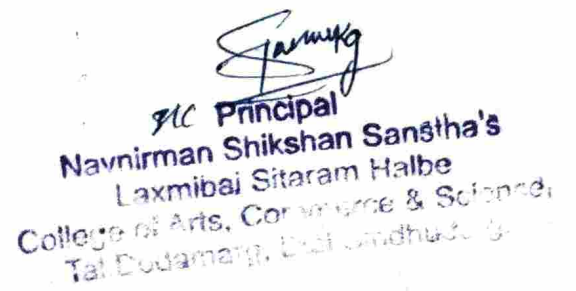 I/C Principal
Navnirman Shikshan Sanstha's
Laxmibai Sitaram Halbe
College of Arts, Commerce & Science,
Tal Dodamarg, Dist Sindhudurg.